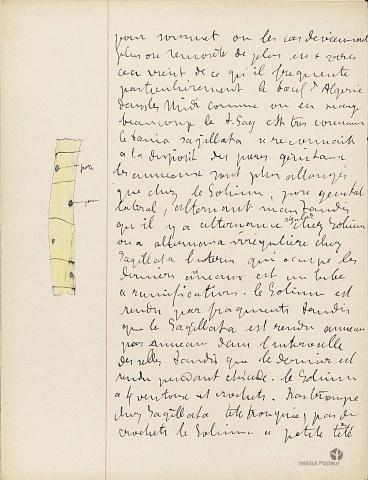 pour sommet on les cas deviennent
plus on remonte de plus en + rares
ceci vient de ce qu'il fréquente
particulièrement le boeuf Algérie
dans le Midi comme on en mange
beaucoup le t. Sag est très commun
le tænia sagillata se reconnait
a la disposit des pores génitaux
les anneaux sont plus allongés
que chez le Solium, pore genital
lateral, alternant mais tandis
qu'il y a alternance régulière chez Solium
on a alternance irrégulière chez
Sagillata l'uterus qui occupe les
derniers anneaux est un tube
a ramifications. le Solium est
rendu par fragments tandis
que le Sagillata est rendu anneau
par anneau dans l'intervalle
des selles tandis que le dernier est
rendu pendant chacune. le Solium
a 4 ventouses et crochets. Pas trompe
chez Sagillata tête tronquée, pas de
crochets le Solium a petite tête
pore
pore
Institut Pasteur